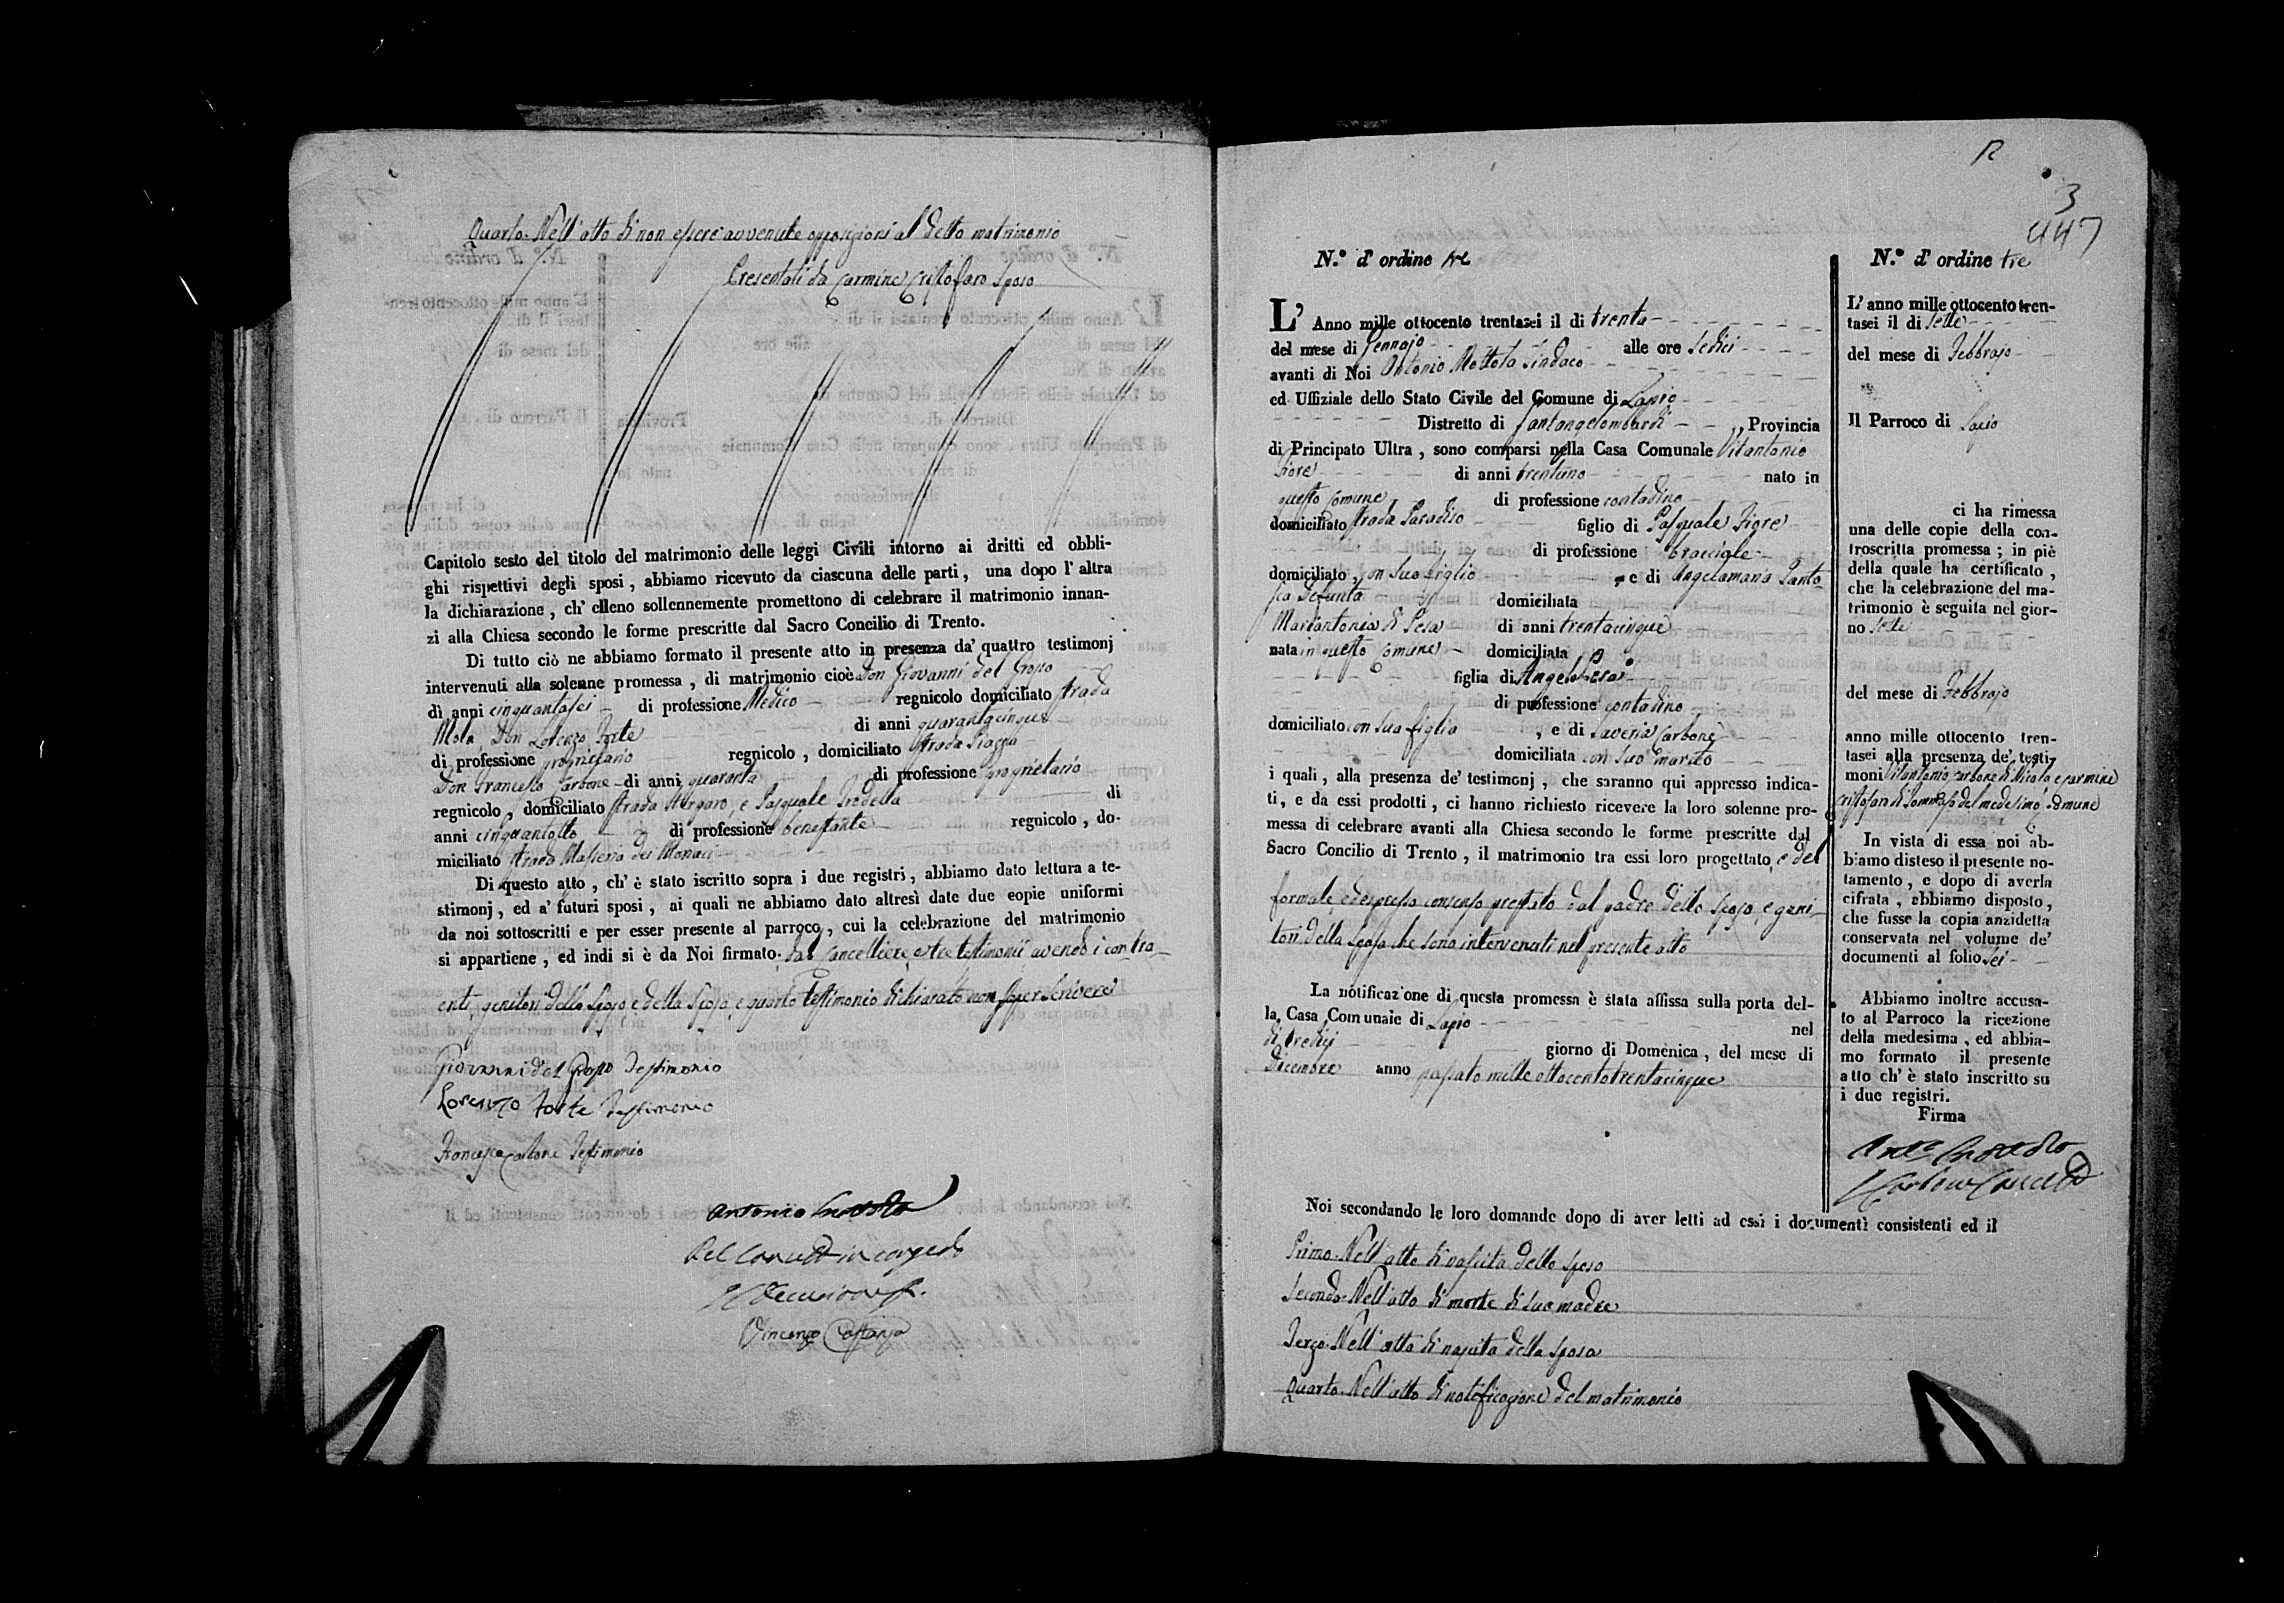 Quarto. Nell'atto di non essere avvenute opposizioni al detto matrimonio
Presentati da Carmine Cristofaro sposo
Capitolo sesto del titolo del matrimonio delle leggi Civili intorno ai dritti ed obbli-
ghi rispettivi degli sposi, abbiamo ricevuto da ciascuna delle parti, una dopo l'altra
la dichiarazione, ch'elleno sollennemente promettono di celebrare il matrimonio innan-
zi alla Chiesa secondo le forme prescritte dal Sacro Concilio di Trento.
Di tutto ciò ne abbiamo formato il presente atto in presenza da' quattro testimonj
intervenuti alla solenne promessa, di matrimonio cioè Don Giovanni del Grosso
di anni cinquantasei di professione Medico regnicolo domiciliato strada
Mola, Don Lorenzo Forte di anni quarantacinque
di professione proprietario regnicolo, domiciliato strada Piazza
Don Francesco Carbone di anni quaranta di professione proprietario
regnicolo, domiciliato strada e Pasquale di
anni cinquantotto di professione benestante regnicolo, do-
miciliato strada Masseria dei Monaci
Di questo atto, ch'è stato iscritto sopra i due registri, abbiamo dato lettura a te-
stimonj, ed a' futuri sposi, ai quali ne abbiamo dato altresì date due eopie uniformi
da noi sottoscritti e per esser presente al parroco, cui la celebrazione del matrimonio
si appartiene, ed indi si è da Noi firmato. dal Cancelliere, e tre testimonii avendo i contra-
enti, genitori dello sposo, e della sposa, e quarto testimonio dichiarato non saper scrivere
Giovanni del Grosso Testimonio
Lorenzo Forte Testimonio
Francesco Carbone Testimonio
Antonio
Pel Cancell. in congedo
Vincenzo
3
447
N.º d'ordine tre
L' Anno mille ottocento trentasei il di trenta
del mese di Gennajo alle ore sedici
avanti di Noi Antonio Mottola Sindaco
ed Uffiziale dello Stato Civile del Comune di Lapio
Distretto di Santangelombardi, Provincia
di Principato Ultra, sono comparsi nella Casa Comunale Vitantonio
Fiore di anni trentuno nato in
questo Comune di professione contadino
domiciliato strada Paradiso figlio di Pasquale Fiore
di professione bracciale
domiciliato, con suo figlio, e di Angelamaria Santo
defunta domiciliata
Mariantonia di Pesa di anni trentacinque
nata in questo Comune domiciliata
figlia di Angelo Pesa
di professione contadino
domiciliato con sua figlia, e di Saveria Carbone
domiciliata con suo marito
i quali, alla presenza de' testimonj, che saranno qui appresso indica-
ti, e da essi prodotti, ci hanno richiesto ricevere la loro solenne pro-
messa di celebrare avanti alla Chiesa secondo le forme prescritte dal
Sacro Concilio di Trento, il matrimonio tra essi loro progettato, e del
formale, ed espresso consenso prestato dal padre dello sposo, e geni-
tori della sposa che sono intervenuti nel presente atto
La notificazione di questa promessa è stata affissa sulla porta del-
la Casa Comunale di Lapio nel
di tredici giorno di Domenica, del mese di
Dicembre anno passato mille ottocentotrentacinque
N.º d'ordine tre
L' anno mille ottocento tren-
tasei il di sette
del mese di Febbrajo
Il Parroco di Lapio
ci ha rimessa
una delle copie della con-
troscritta promessa; in piè
della quale ha certificato,
che la celebrazione del ma-
trimonio è seguita nel gior-
no sette
del mese di Febbrajo
anno mille ottocento tren-
tasei alla presenza de' testi-
moni Vitantonio Carbone di Nicola, e Carmine
Cristofaro di Tommaso del medesimo Comune
In vista di essa noi ab-
biamo disteso il presente no-
tamento, e dopo di averla
cifrata, abbiamo disposto,
che fusse la copia anzidetta
conservata nel volume de'
documenti al folio sei
Abbiamo inoltre accusa-
to al Parroco la ricezione
della medesima, ed abbia-
mo formato il presente
atto ch'è stato inscritto su
i due registri.
Firma
Noi secondando le loro domande dopo di aver letti ad essi i documenti consistenti ed il
Primo. Nell'atto di nascita dello sposo
Secondo. Nell'atto di morte di sua madre
Terzo. Nell'atto di nascita della sposa
Quarto. Nell'atto di notificazione del matrimonio